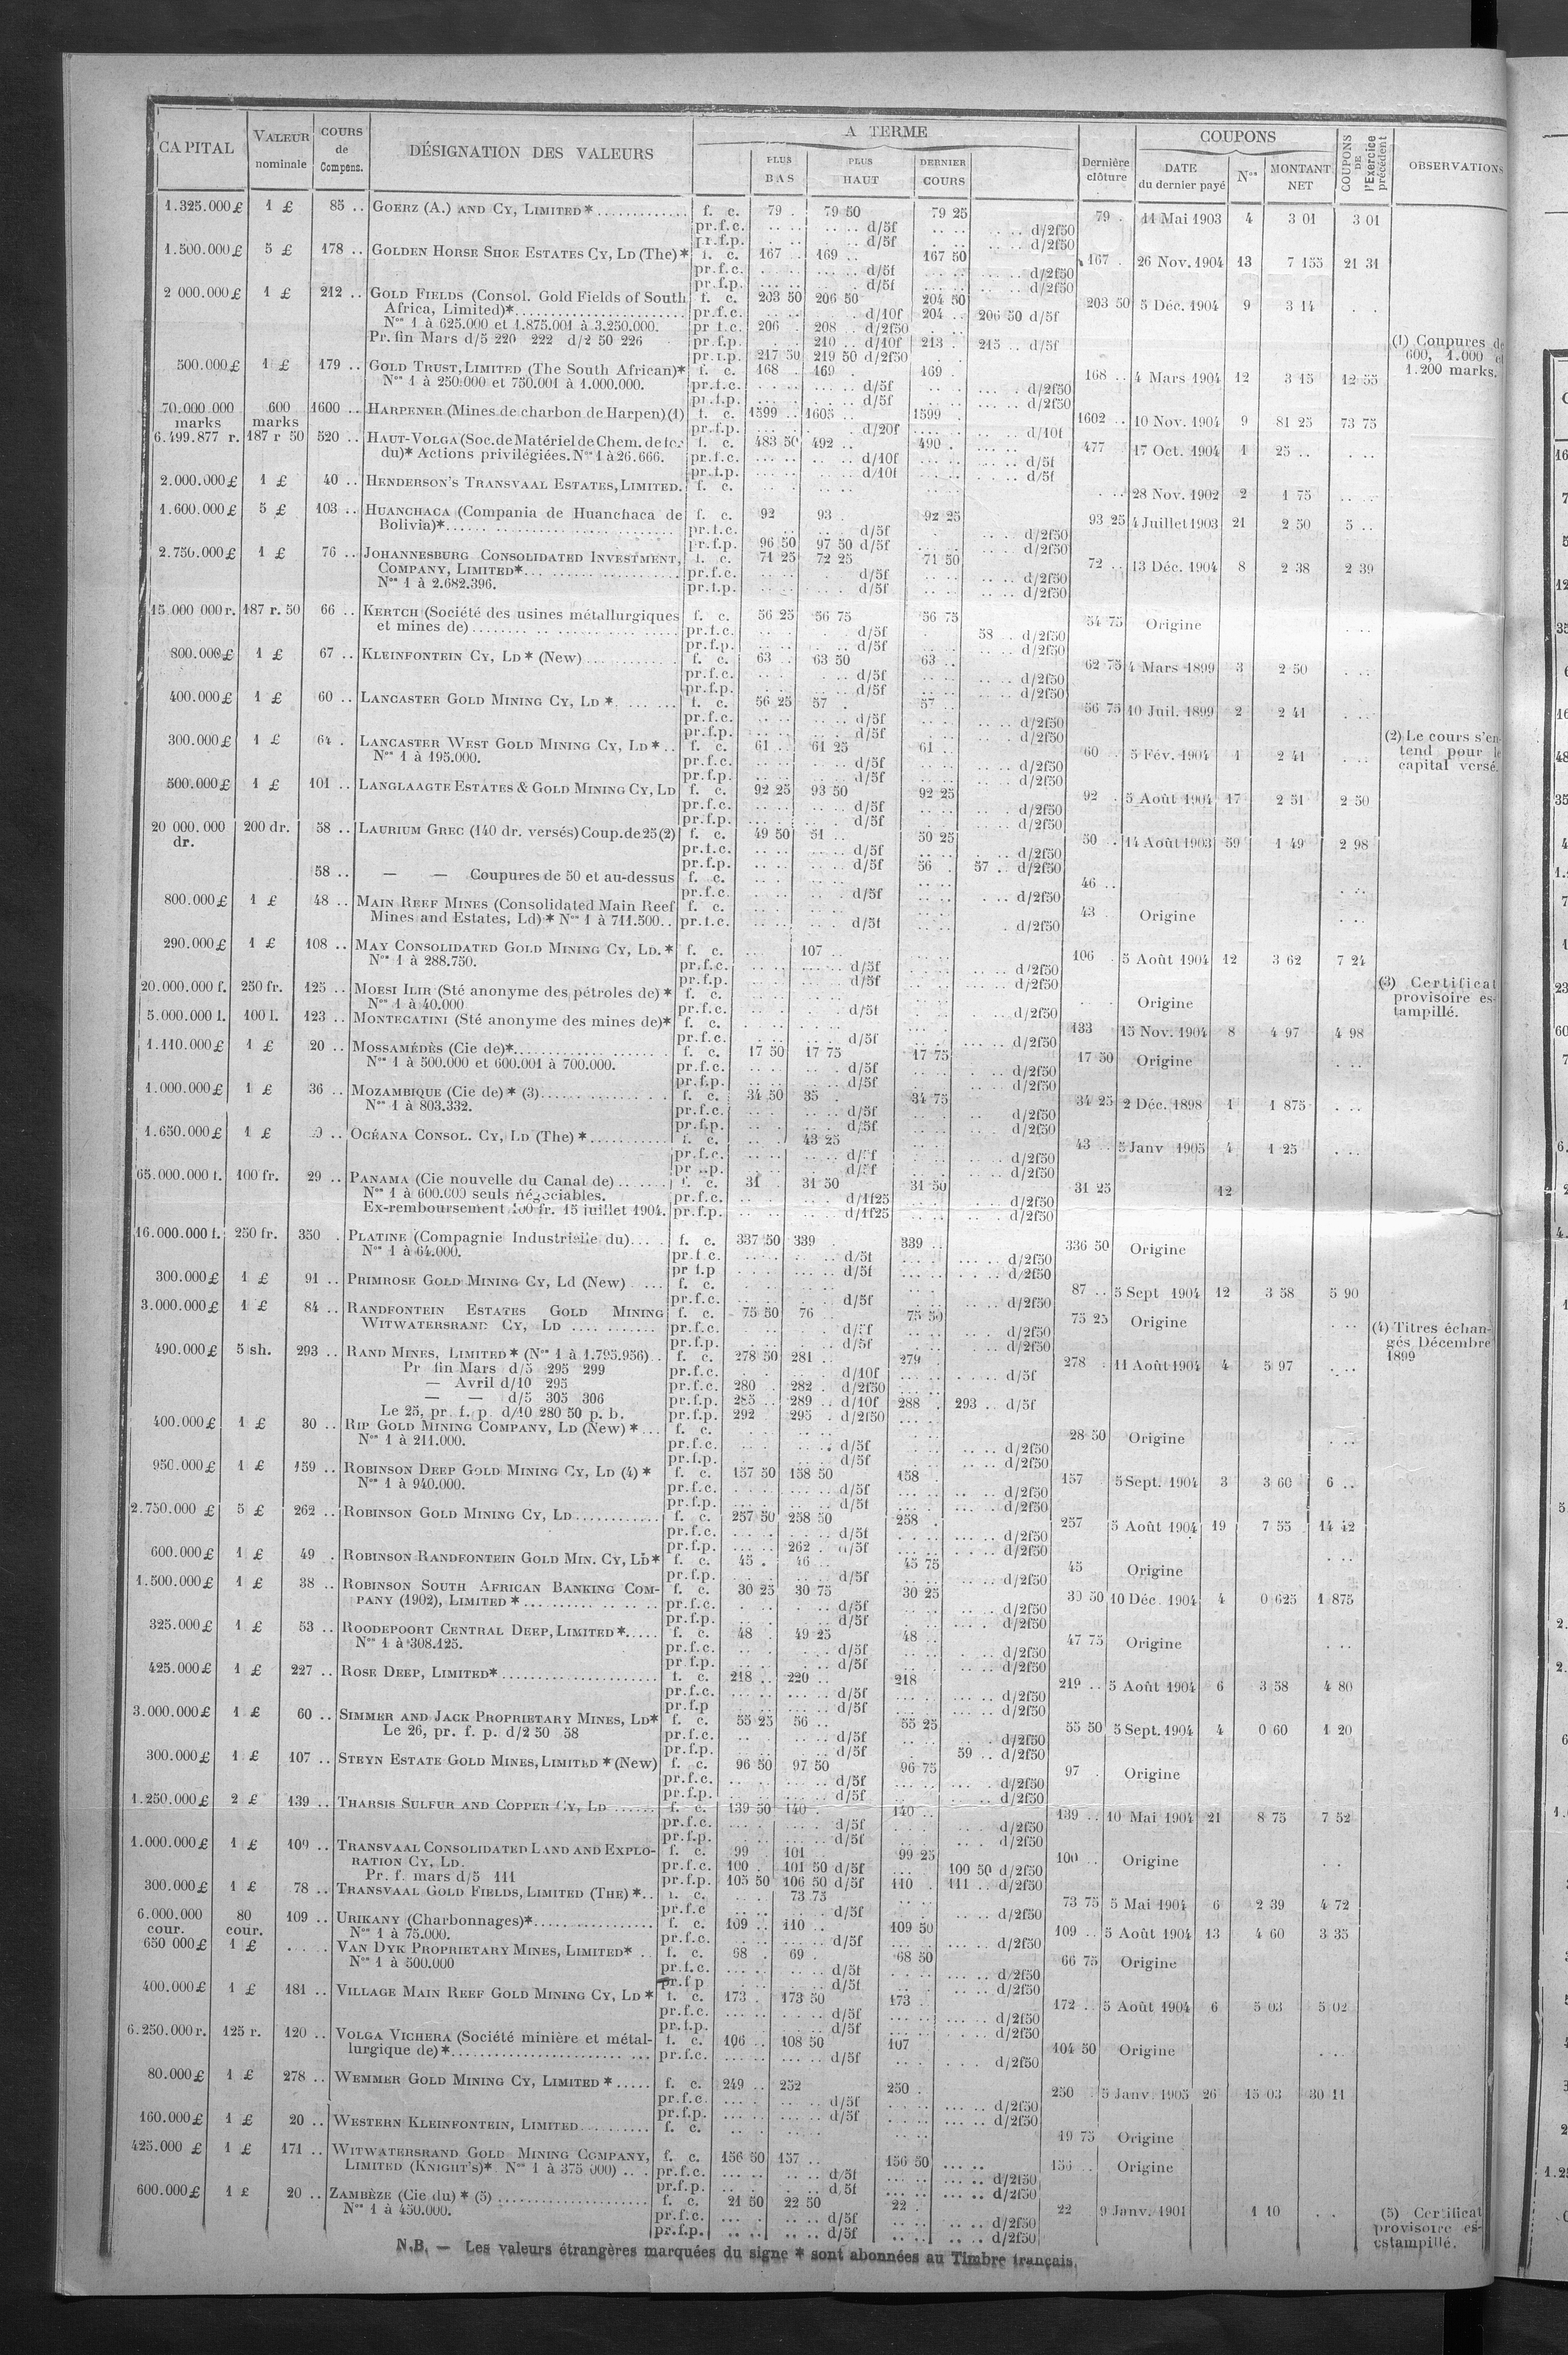 CAPITAL VALEUR nominale COURS de Compens. DÉSIGNATION DES VALEURS A TERME PLUS BAS PLUS HAUT DERNIER COURS Dernière clôture COUPONS DATE du dernier payé Nos MONTANT NET COUPONS DE l'Exercice précédent OBSERVATIONS
1.325.000£ 1 £ 85 .. GOERZ (A.) AND CY, LIMITED* f. c. 79 . 79 50 79 25 79 . 11 Mai 1903 4 3 01 3 01
pr.f.c. d/5f d/2f50
pr.f.p. d/5f d/2f50
1.500.000£ 5 £ 178 .. GOLDEN HORSE SHOE ESTATES CY, LD (The)* f. c. 167 . 169 .. 167 50 167 . 26 Nov. 1904 13 7 155 21 31
pr.f.c. d/5f d/2f50
pr.f.p. d/5f d/2f50
2 000.000£ 1 £ 212 .. GOLD FIELDS (Consol. Gold Fields of South f. c. 203 50 206 50 204 50 203 50 5 Déc. 1904 9 3 14
Africa, Limited)* pr.f.c. d/10f 204 .. 206 50 d/5f
Nos 1 à 625.000 et 1.875.001 à 3.250.000. pr f.c. 206 . 208 .. d/2f50
Pr. fin Mars d/5 220 222 d/2 50 226 pr.f.p. 210 .. d/10f 213 . 215 .. d/5f
pr.f.p. 217 50 219 50 d/2f50
(1) Coupures de
600, 1.000 et
1.200 marks.
500.000£ 1 £ 179 .. GOLD TRUST, LIMITED (The South African)* f. c. 168 . 169 . 169 . 168 .. 4 Mars 1904 12 3 15 12 55
Nos 1 à 250.000 et 750.001 à 1.000.000. pr.f.c. d/5f d/2f50
pr.f.p. d/5f d/2f50
70.000.000 marks 600 marks 1600 .. HARPENER (Mines de charbon de Harpen) (1) f. c. 1599 .. 1605 .. 1599 . 1602 .. 10 Nov. 1904 9 81 25 73 75
pr.f.p. d/20f d/10f
6.499.877 r. 187 r 50 520 .. HAUT-VOLGA (Soc. de Matériel de Chem. de fer f. c. 483 50 492 .. 490 . 477 . 17 Oct. 1904 1 25 ..
du)* Actions privilégiées. Nos 1 à 26.666. pr.f.c. d/10f d/5f
pr.f.p. d/10f d/5f
2.000.000£ 1 £ 40 .. HENDERSON'S TRANSVAAL ESTATES, LIMITED. f. c. 28 Nov. 1902 2 1 75
1.600.000£ 5 £ 103 .. HUANCHACA (Compania de Huanchaca de f. c. 92 93 . 92 25 93 25 4 Juillet 1903 21 2 50 5 ..
Bolivia)* pr.f.c. d/5f d/2f50
pr.f.p. 96 50 97 50 d/5f d/2f50
2.750.000£ 1 £ 76 .. JOHANNESBURG CONSOLIDATED INVESTMENT, f. c. 71 25 72 25 71 50 72 .. 13 Déc. 1904 8 2 38 2 39
COMPANY, LIMITED* pr.f.c. d/5f d/2f50
Nos 1 à 2.682.396. pr.f.p. d/5f d/2f50
15.000 000 r. 187 r. 50 66 .. KERTCH (Société des usines métallurgiques f. c. 56 25 56 75 56 75 54 75 Origine
et mines de) pr.f.c. d/5f 58 .. d/2f50
pr.f.p. d/5f d/2f50
800.000£ 1 £ 67 .. KLEINFONTEIN CY, LD* (New) f. c. 63 .. 63 50 63 .. 62 75 4 Mars 1899 3 2 50
pr.f.c. d/5f d/2f50
pr.f.p. d/5f d/2f50
400.000£ 1 £ 60 .. LANCASTER GOLD MINING CY, LD * f. c. 56 25 57 . 57 .. 56 75 10 Juil. 1899 2 2 41
pr.f.c. d/5f d/2f50
pr.f.p. d/5f d/2f50
300.000£ 1 £ 64 . LANCASTER WEST GOLD MINING CY, LD * f. c. 61 .. 61 25 61 .. 60 . 5 Fév. 1904 1 2 41
Nos 1 à 195.000. pr.f.c. d/5f d/2f50
pr.f.p. d/5f d/2f50
(2) Le cours s'en-
tend pour le
capital versé.
500.000£ 1 £ 101 .. LANGLAAGTE ESTATES & GOLD MINING CY, LD f. c. 92 25 93 50 92 25 92 . 5 Août 1904 17 2 51 2 50
pr.f.c. d/5f d/2f50
pr.f.p. d/5f d/2f50
20 000.000 dr. 200 dr. 58 .. LAURIUM GREC (140 dr. versés) Coup. de 25 (2) f. c. 49 50 51 .. 50 25 50 . 14 Août 1903 59 1 49 2 98
pr.f.c. d/5f d/2f50
pr.f.p. d/5f 56 . 57 .. d/2f50
58 .. — — Coupures de 50 et au-dessus f. c. 46 ..
pr.f.c. d/5f d/2f50
800.000£ 1 £ 48 .. MAIN REEF MINES (Consolidated Main Reef f. c. 43 . Origine
Mines and Estates, Ld) * Nos 1 à 711.500.. pr.f.c. d/5f d/2f50
290.000£ 1 £ 108 .. MAY CONSOLIDATED GOLD MINING CY, LD. * f. c. 107 .. 106 . 5 Août 1904 12 3 62 7 24
Nos 1 à 288.750. pr.f.c. d/5f d/2f50
pr.f.p. d/5f d/2f50
20.000.000 f. 250 fr. 125 .. MOESI ILIR (Sté anonyme des pétroles de) * f. c. Origine
Nos 1 à 40.000 pr.f.c. d/5f d/2f50
(3) Certificat
provisoire es-
tampillé.
5.000.000 l. 100 l. 123 .. MONTECATINI (Sté anonyme des mines de)* f. c. 133 15 Nov. 1904 8 4 97 4 98
pr.f.c. d/5f d/2f50
1.110.000£ 1 £ 20 .. MOSSAMÉDÈS (Cie de)* f. c. 17 50 17 75 17 75 17 50 Origine
Nos 1 à 500.000 et 600.001 à 700.000. pr.f.c. d/5f d/2f50
pr.f.p. d/5f d/2f50
1.000.000£ 1 £ 36 .. MOZAMBIQUE (Cie de) * (3) f. c. 34 50 35 . 34 75 34 25 2 Déc. 1898 1 1 875
Nos 1 à 803.332. pr.f.c. d/5f d/2f50
pr.f.p. d/5f d/2f50
1.650.000£ 1 £ OCÉANA CONSOL. CY, LD (The) * f. c. 43 25 43 .. 5 Janv 1905 4 1 25
pr.f.c. d/5f d/2f50
d/5f d/2f50
65.000.000 f. 100 fr. 29 .. PANAMA (Cie nouvelle du Canal de) f. c. 31 . 31 50 31 50 31 25 12
Nos 1 à 600.000 seuls négociables. pr.f.c. d/1f25 d/2f50
Ex-remboursement 100 fr. 15 juillet 1904. pr.f.p. d/1f25 d/2f50
16.000.000 f. 250 fr. 350 . PLATINE (Compagnie Industrielle du) f. c. 337 50 339 . 339 .. 336 50 Origine
Nos 1 à 64.000. pr.f.c. d/5f d/2f50
pr f.p d/5f d/2f50
300.000£ 1 £ 91 .. PRIMROSE GOLD MINING CY, Ld (New) f. c. 87 .. 5 Sept 1904 12 3 58 5 90
pr.f.c. d/5f d/2f50
3.000.000£ 1 £ 84 .. RANDFONTEIN ESTATES GOLD MINING f. c. 75 50 76 .. 75 50 75 25 Origine
WITWATERSRAND CY, LD pr.f.c. d/5f d/2f50
pr.f.p. d/5f d/2f50
(4) Titres échan-
gés Décembre
1899
490.000£ 5 sh. 293 .. RAND MINES, LIMITED * (Nos 1 à 1.795.956) f. c. 278 50 281 .. 279 . 278 . 11 Août 1904 4 5 97
Pr fin Mars d/5 295 299 pr.f.c. d/10f d/5f
— Avril d/10 295 pr.f.c. 280 . 282 . d/2f50
— — d/5 305 306 pr.f.p. 285 .. 289 .. d/10f 288 . 293 .. d/5f
Le 25, pr. f. p. d/10 280 50 p. b. pr.f.p. 292 . 295 . d/2f50
400.000£ 1 £ 30 .. RIP GOLD MINING COMPANY, LD (New) * f. c. 28 50 Origine
Nos 1 à 211.000. pr.f.c. d/5f d/2f50
pr.f.p. d/5f d/2f50
950.000£ 1 £ 159 .. ROBINSON DEEP GOLD MINING CY, LD (4) * f. c. 157 50 158 50 158 . 157 5 Sept. 1904 3 3 60 6 ..
Nos 1 à 940.000. pr.f.c. d/5f d/2f50
pr.f.p. d/5f d/2f50
2.750.000 £ 5 £ 262 .. ROBINSON GOLD MINING CY, LD f. c. 257 50 258 50 258 . 257 5 Août 1904 19 7 55 14 42
pr.f.c. d/5f d/2f50
pr.f.p. 262 . d/5f d/2f50
600.000£ 1 £ 49 . ROBINSON RANDFONTEIN GOLD MIN. CY, LD* f. c. 45 . 46 .. 45 75 45 Origine
pr.f.p. d/5f d/2f50
1.500.000£ 1 £ 38 .. ROBINSON SOUTH AFRICAN BANKING COM- f. c. 30 25 30 75 30 25 30 50 10 Déc. 1904 4 0 625 1 875
PANY (1902), LIMITED * pr.f.c. d/5f d/2f50
pr.f.p. d/5f d/2f50
325.000£ 1 £ 53 .. ROODEPOORT CENTRAL DEEP, LIMITED * f. c. 48 . 49 25 48 .. 47 75 Origine
Nos 1 à 308.125. pr.f.c. d/5f d/2f50
pr f.p. d/5f d/2f50
425.000£ 1 £ 227 .. ROSE DEEP, LIMITED* f. c. 218 .. 220 .. 218 219 .. 5 Août 1904 6 3 58 4 80
pr.f.c. d/5f d/2f50
pr.f.p d/5f d/2f50
3.000.000£ 1 £ 60 .. SIMMER AND JACK PROPRIETARY MINES, LD* f. c. 55 25 56 .. 55 25 55 50 5 Sept. 1904 4 0 60 1 20
Le 26, pr. f. p. d/2 50 58 pr.f.c. d/5f d/2f50
pr.f.p. d/5f 59 .. d/2f50
300.000£ 1 £ 107 .. STEYN ESTATE GOLD MINES, LIMITED * (New) f. c. 96 50 97 50 96 75 97 . Origine
pr.f.c. d/5f d/2f50
pr.f.p. d/5f d/2f50
1.250.000£ 2 £ 139 .. THARSIS SULFUR AND COPPER CY, LD f. c. 139 50 140 . 140 .. 139 .. 10 Mai 1904 21 8 75 7 52
pr.f.c. d/5f d/2f50
pr.f.p. d/5f d/2f50
1.000.000£ 1 £ 109 .. TRANSVAAL CONSOLIDATED LAND AND EXPLO- f. c. 99 . 101 99 25 100 .. Origine
RATION CY, LD. pr.f.c. 100 . 101 50 d/5f 100 50 d/2f50
Pr. f. mars d/5 111 pr.f.p. 105 50 106 50 d/5f 110 . 111 .. d/2f50
300.000£ 1 £ 78 .. TRANSVAAL GOLD FIELDS, LIMITED (THE) * f. c. 73 75 73 75 5 Mai 1904 6 2 39 4 72
pr.f.c d/5f d/2f50
6.000.000 cour. 80 cour. 109 .. URIKANY (Charbonnages)* f. c. 109 .. 110 .. 109 50 109 .. 5 Août 1904 13 4 60 3 35
Nos 1 à 75.000. pr.f.c. d/5f d/2f50
650 000£ 1 £ VAN DYK PROPRIETARY MINES, LIMITED* f. c. 68 . 69 . 68 50 66 75 Origine
Nos 1 à 500.000 pr.f.c. d/5f d/2f50
pr.f.p d/5f d/2f50
400.000£ 1 £ 181 .. VILLAGE MAIN REEF GOLD MINING CY, LD * f. c. 173 . 173 50 173 . 172 .. 5 Août 1904 6 5 03 5 02
pr.f.c. d/5f d/2f50
pr.f.p. d/5f d/2f50
6.250.000 r. 125 r. 120 .. VOLGA VICHERA (Société minière et métal- f. c. 106 .. 108 50 107 104 50 Origine
lurgique de) * pr.f.c. d/5f d/2f50
80.000£ 1 £ 278 .. WEMMER GOLD MINING CY, LIMITED * f. c. 249 .. 252 250 . 250 5 Janv. 1905 26 15 03 30 11
pr.f.c. d/5f d/2f50
pr.f.p. d/5f d/2f50
160.000£ 1 £ 20 .. WESTERN KLEINFONTEIN, LIMITED f. c. 19 75 Origine
425.000 £ 1 £ 171 .. WITWATERSRAND GOLD MINING COMPANY, f. c. 156 50 157 .. 156 50 156 .. Origine
LIMITED (KNIGHT'S)* Nos 1 à 375 000) pr.f.c. d/5f d/2f50
pr.f.p. d/5f d/2f50
600.000£ 1 £ 20 .. ZAMBÈZE (Cie du) * (5) f. c. 21 50 22 50 22 . 22 9 Janv. 1901 1 10
Nos 1 à 450.000. pr.f.c. d/5f d/2f50
pr.f.p. d/5f d/2f50
(5) Certificat
provisoire es-
estampillé.
N.B. — Les valeurs étrangères marquées du signe * sont abonnées au Timbre français.